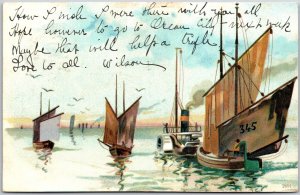 How I wish I were there with you all
Hope however to go to Dream City next week
Maybe that will help a trifle
Love to all. Wilson
345